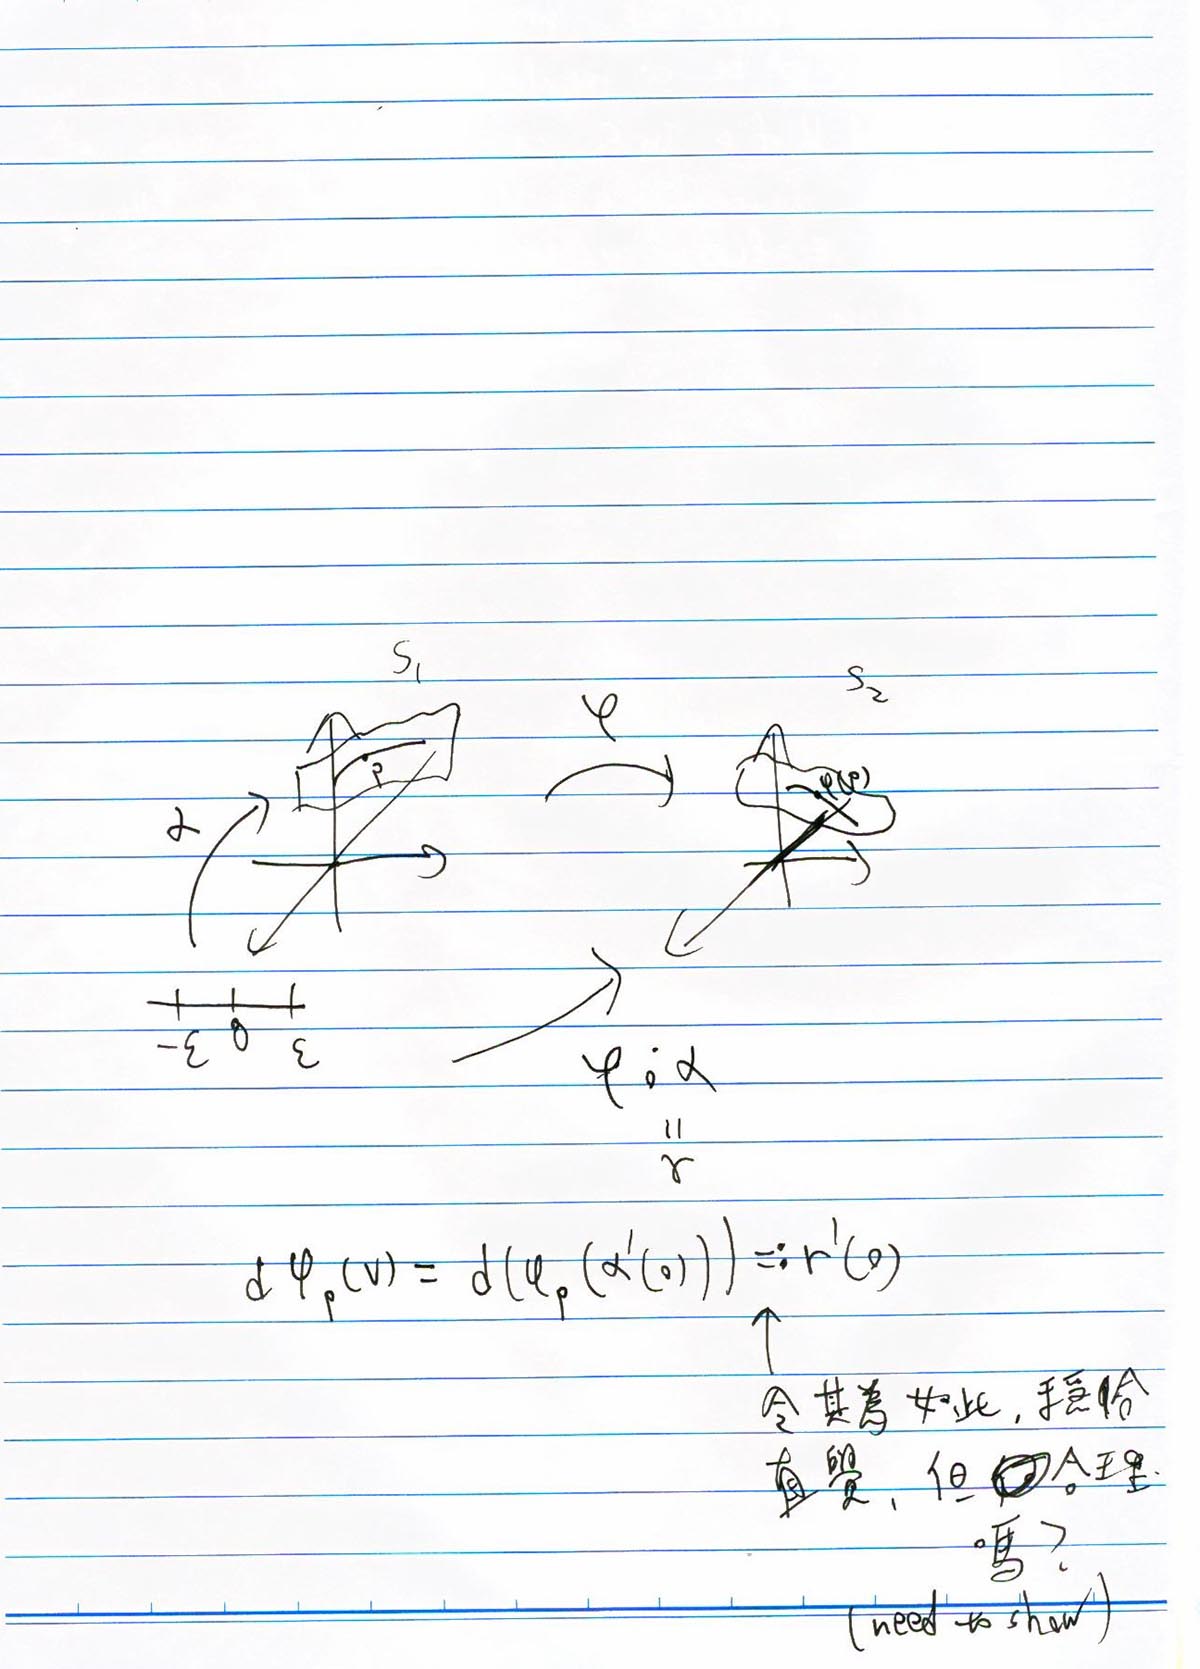 S₁
S₂
φ
p
φ(p)
α
-ε 0 ε
φ∘α
=
r
dφ_p(v) = d(φ_p(α'(0))) =: r'(0)
↑
令其為如此,
直覺, 但 合理
嗎?
(need to show)